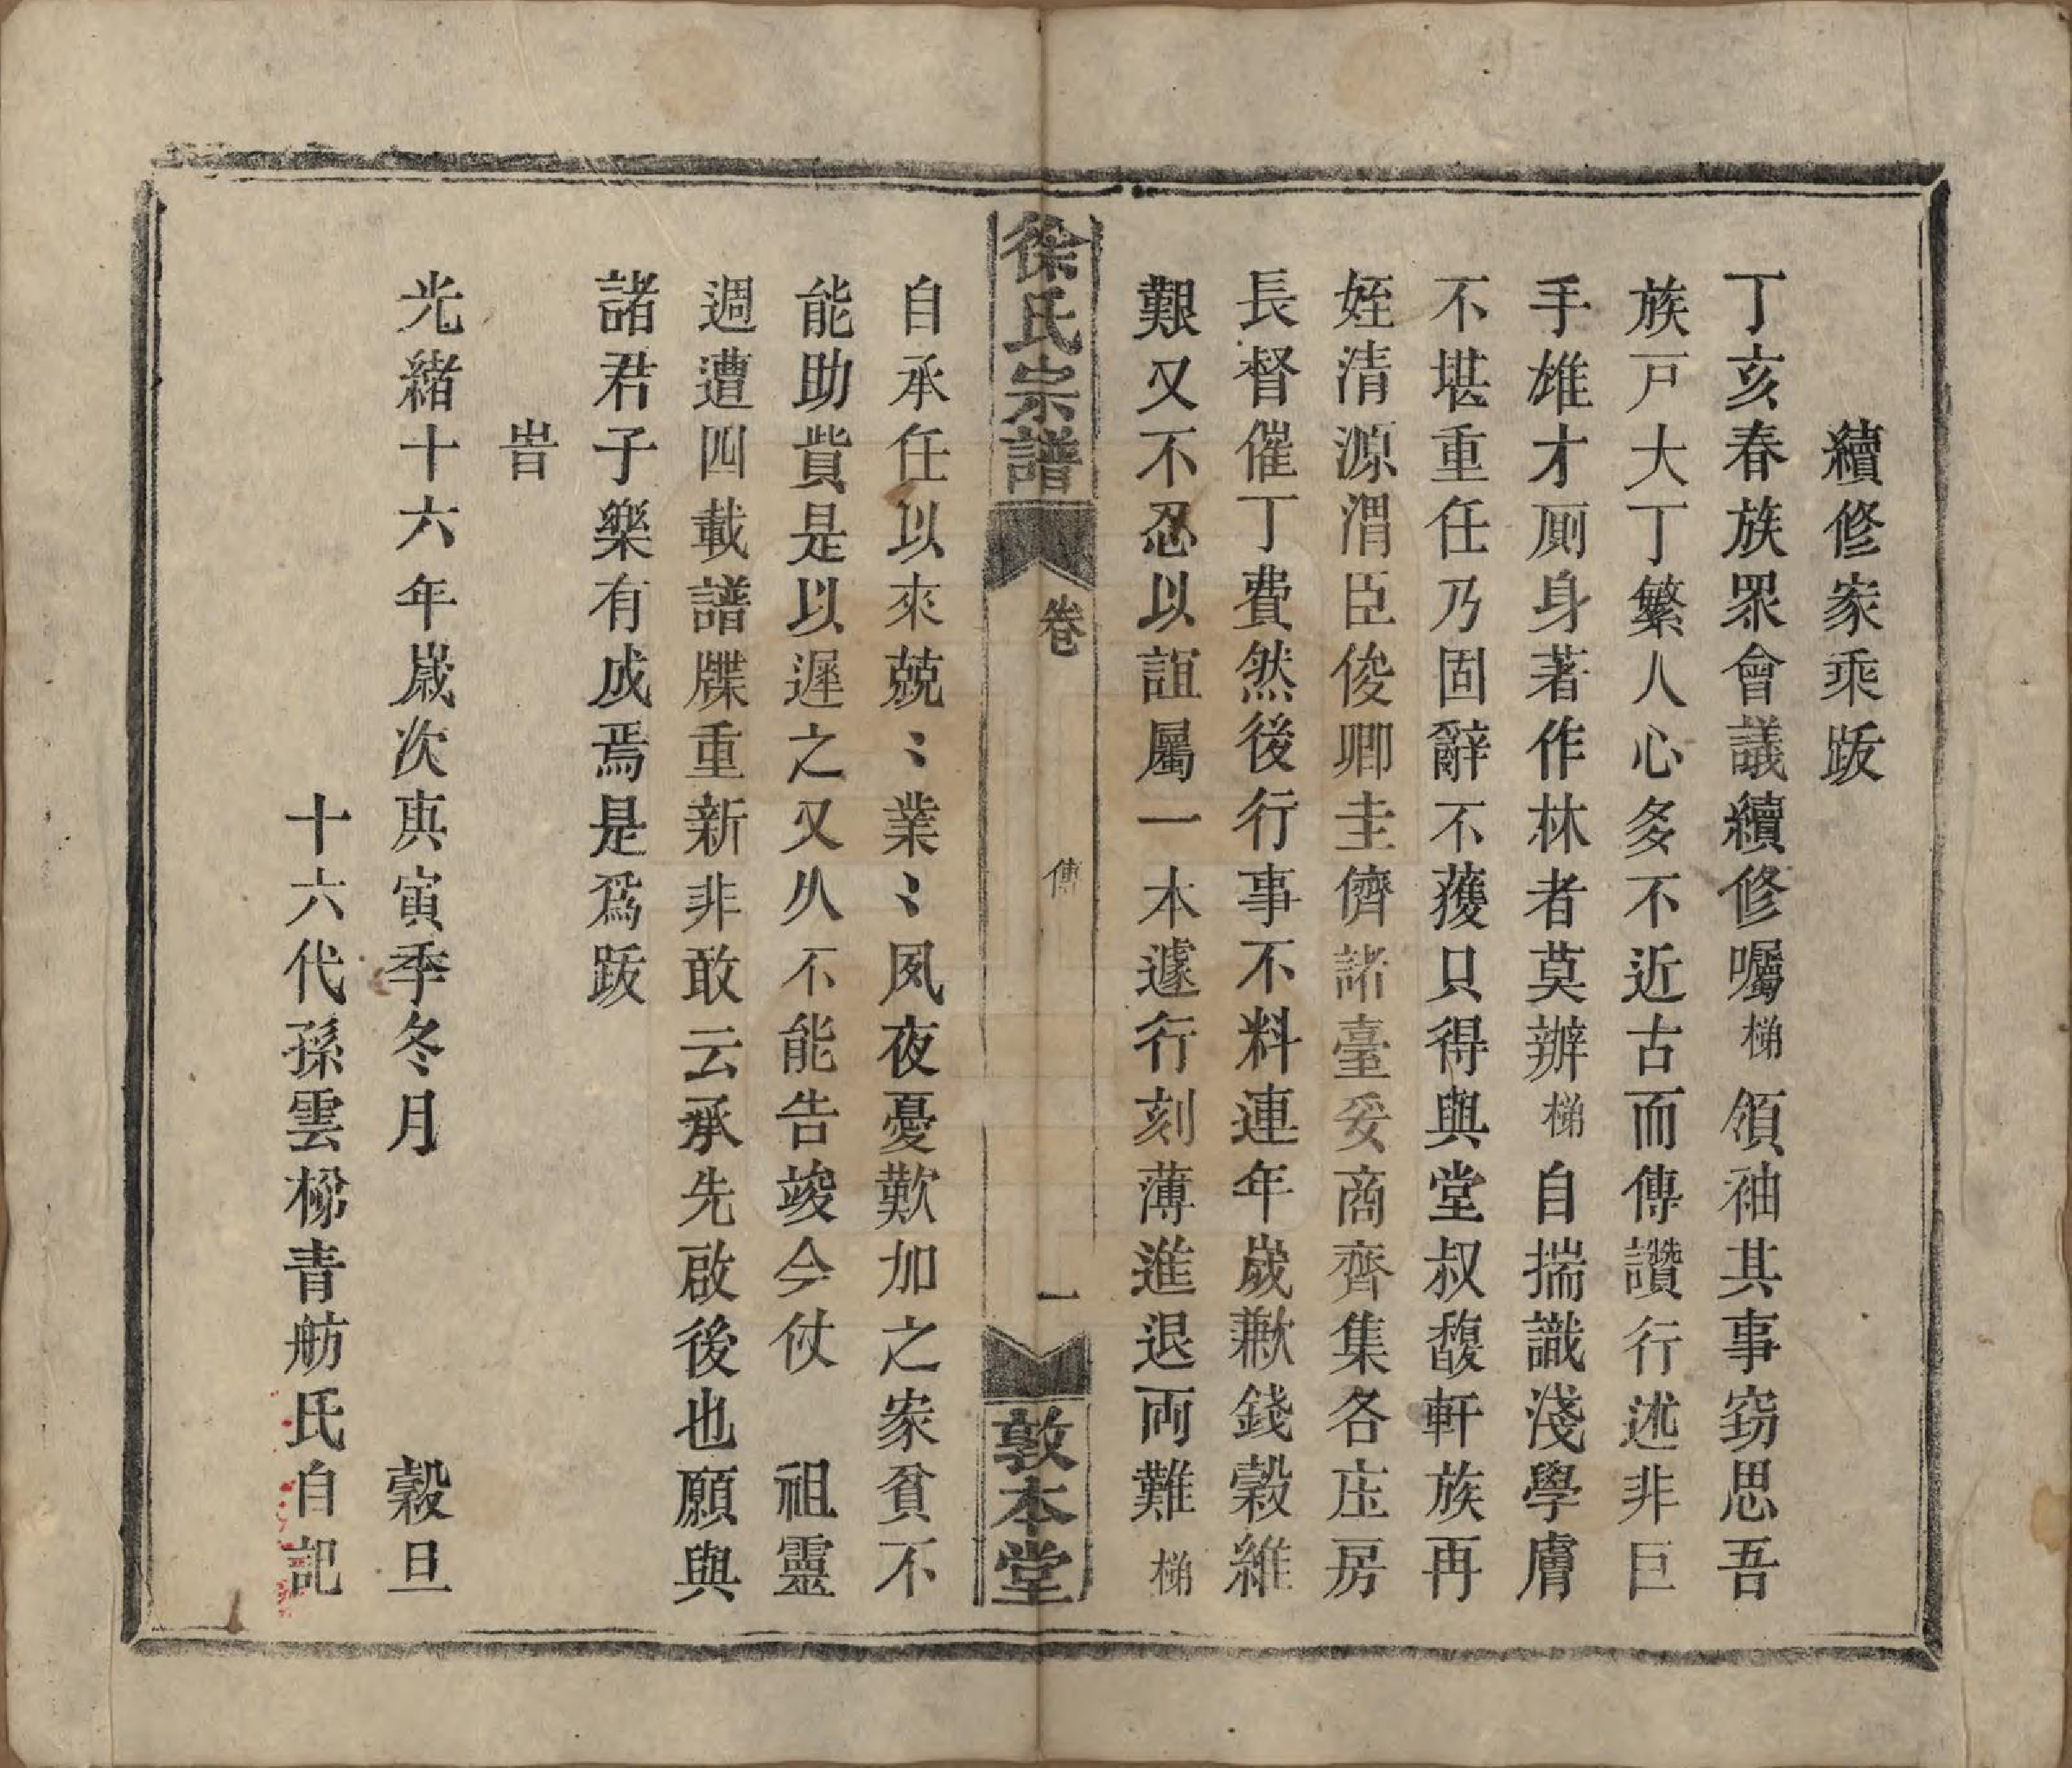 續修家乘跋
丁亥春族眾會議續修囑梯領袖其事窃思吾
族戶大丁繁人心多不近古而傳讚行述非巨
手雄才厠身著作林者莫辦梯自揣識淺學膚
不堪重任乃固辭不獲只得與堂叔馥軒族再
姪清源渭臣俊卿圭儕諸臺妥商齊集各庄房
長督催丁費然後行事不料連年歲歉錢穀維
艱又不忍以誼屬一本遽行刻薄進退両難梯
徐氏宗譜
卷
傳
一
敦本堂
自承任以來兢〻業〻夙夜憂歎加之家貧不
能助貲是以遲之又久不能告竣今仗 祖靈
週遭四載譜牒重新非敢云承先啟後也願與
諸君子樂有成焉是為跋
旹
光緒十六年歲次庚寅季冬月 穀旦
十六代孫雲梯青舫氏自記